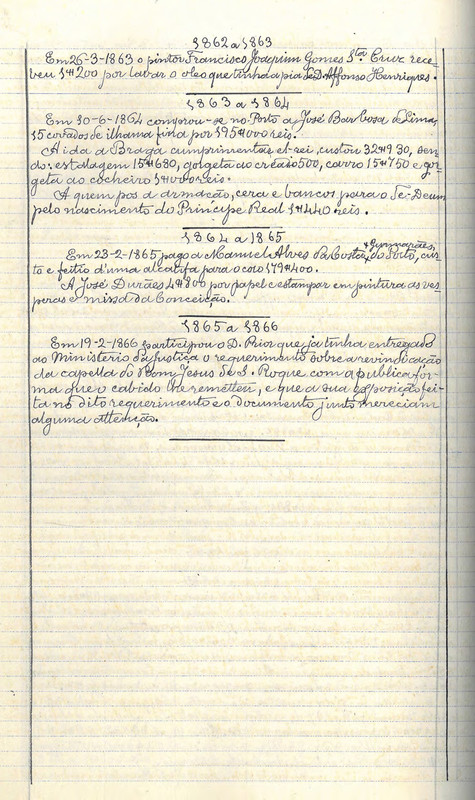 1862 a 1863
Em 26-3-1863 o pintor Francisco Joaquim Gomes S.ta Cruz rece-
beu 1#200 por lavar o oleo que tinha a pia de D. Affonso Henriques.
1863 a 1864
Em 30-6-1864 comprou-se no Porto a José Barbosa de Lima,
15 covados de ilhama fina por 195#000 reis.
A ida a Braga cumprimentar el-rei, custou 32#930, sen-
do: estalagem 15#680, gorgeta ao creado 500, carro 15#750 e gor-
geta ao cocheiro 1#000 reis.
A quem pos a armação, cera e bancos para o Te-Deum
pelo nascimento do Principe Real 1#440 reis.
1864 a 1865
Em 23-2-1865 pago a Manuel Alves da Costa Guimarães, do Porto, cus-
to e feitio d'uma alcatifa para o coro 179#400.
A José Durães 4#800 por papel e estampar em pintura as ves-
peras e missa da Conceição.
1865 a 1866
Em 19-2-1866 participou o D. Prior que ja tinha entregado
ao Ministerio da Justiça o requerimento sobre a revindicação
da capella do Bom Jesus de S. Roque com a publica fór-
ma que o cabido lhe remetteu, e que a sua exposição fei-
ta no dito requerimento e o documento junto mereciam
alguma attenção.